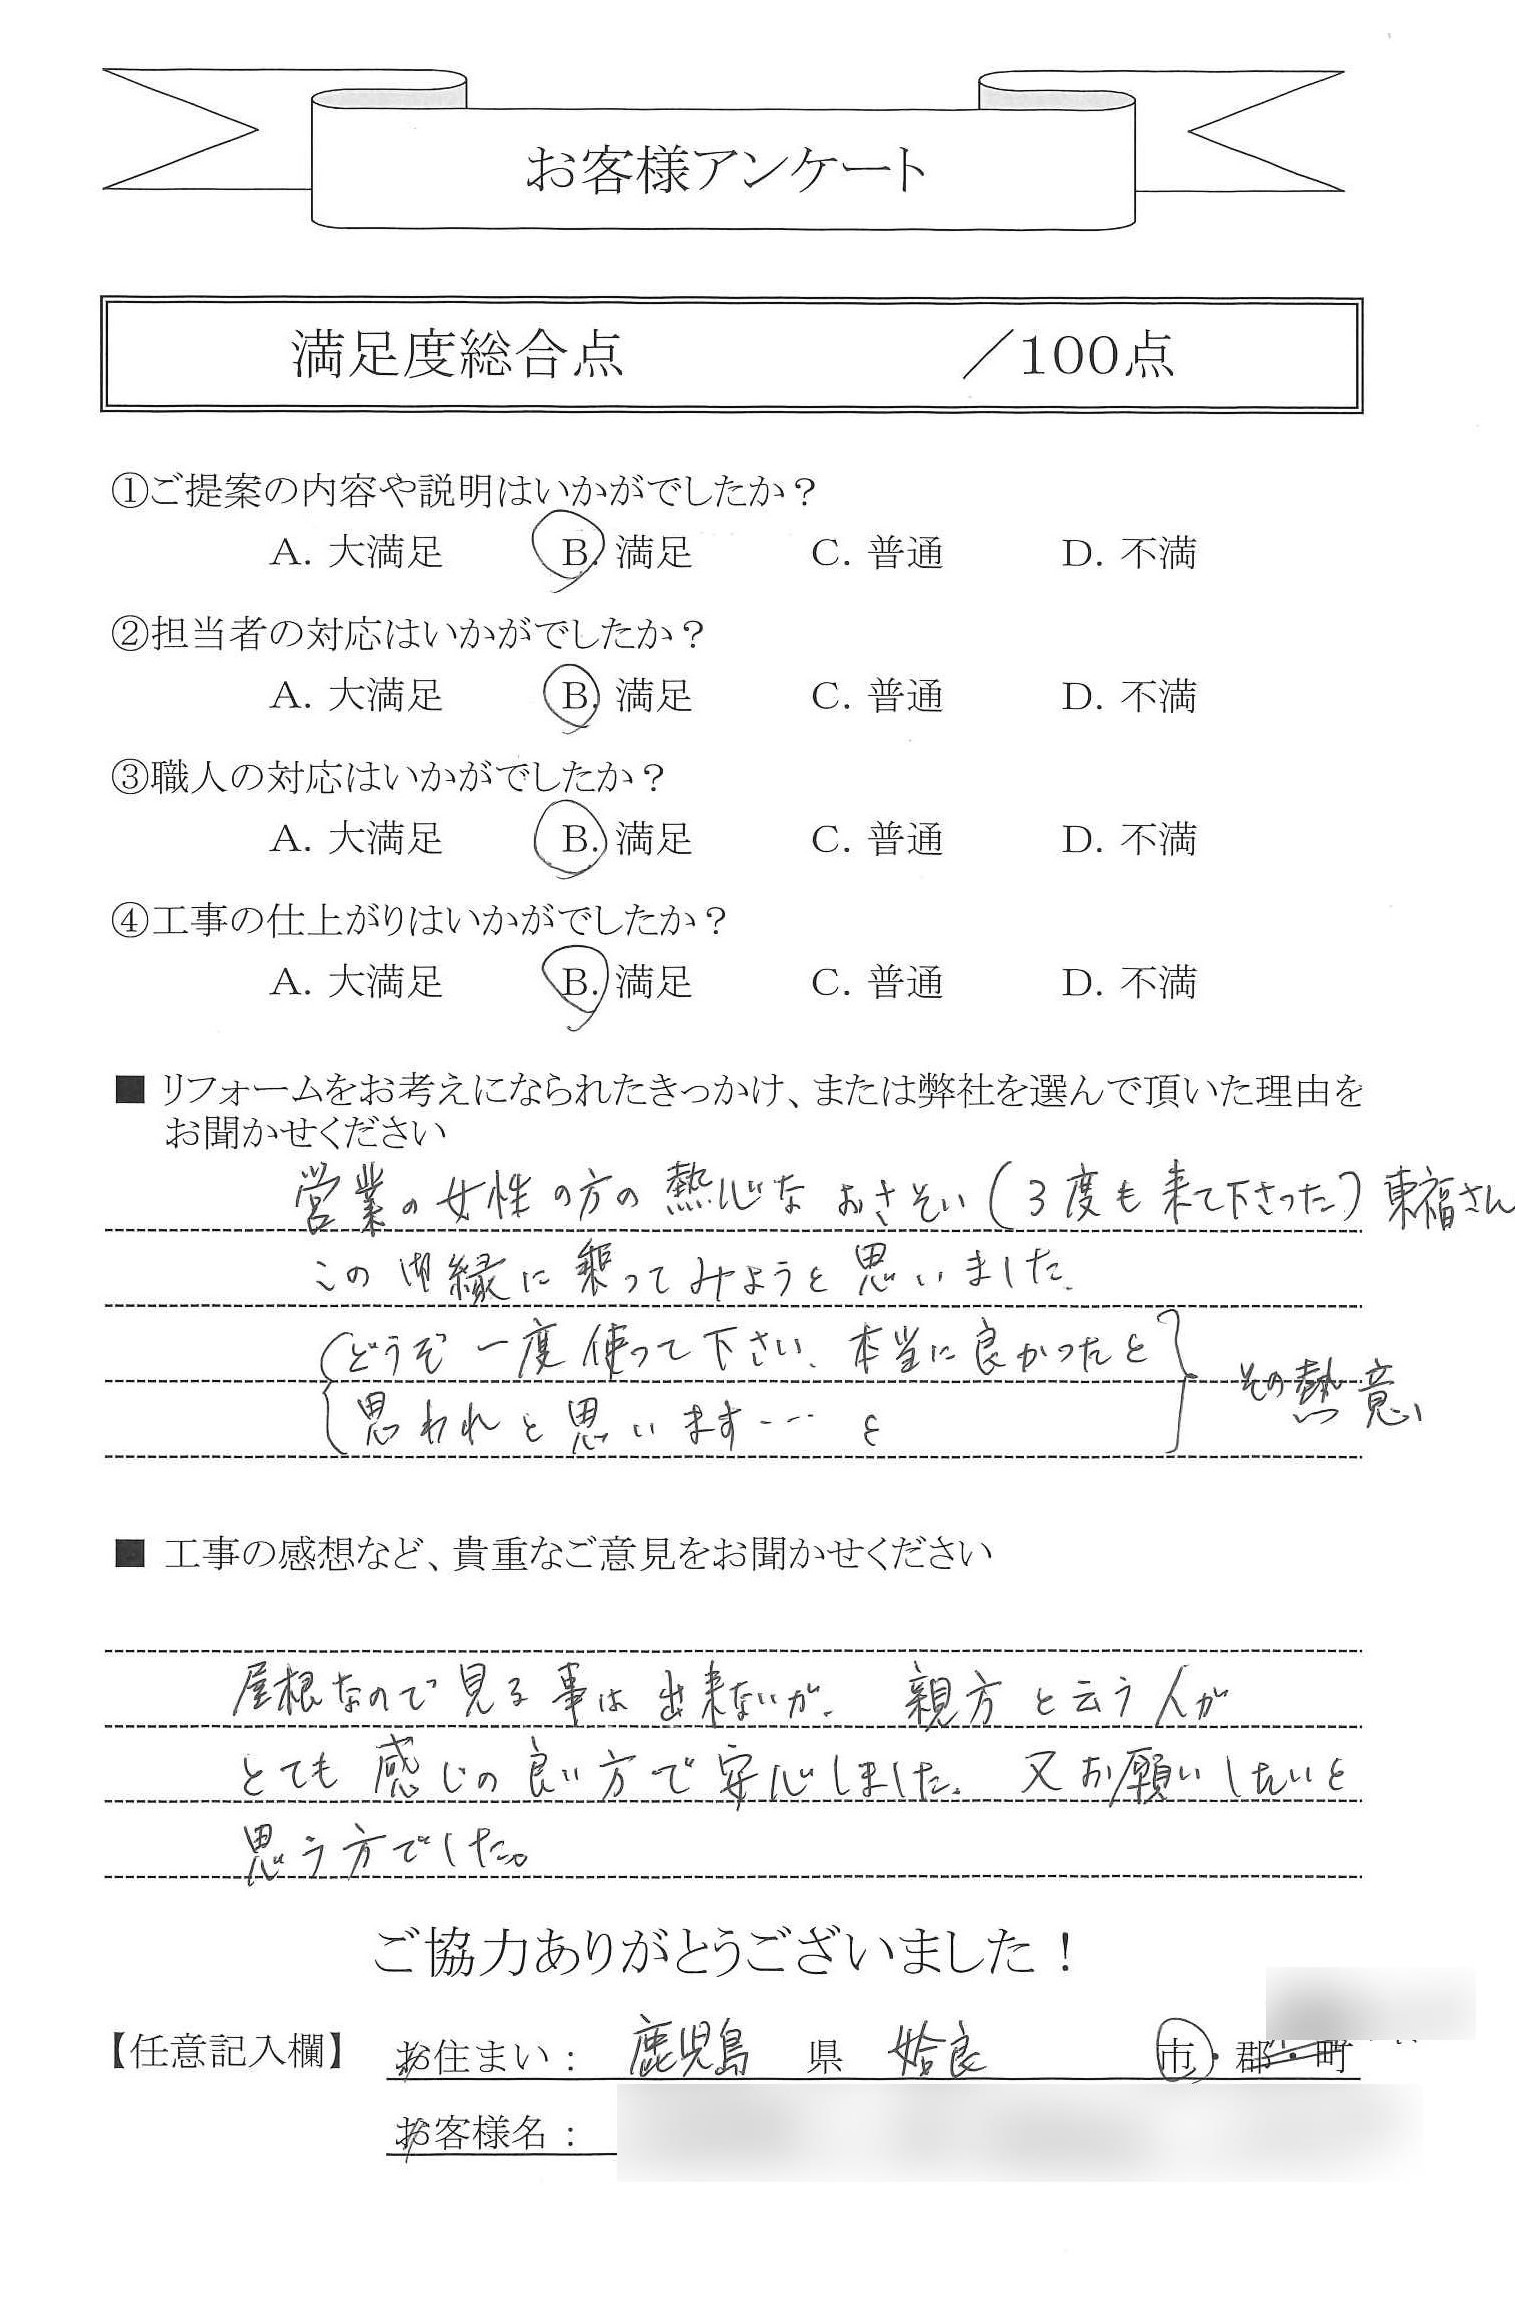 お客様アンケート
満足度総合点　　／100点
①ご提案の内容や説明はいかがでしたか？
A. 大満足　B. 満足　C. 普通　D. 不満
②担当者の対応はいかがでしたか？
A. 大満足　B. 満足　C. 普通　D. 不満
③職人の対応はいかがでしたか？
A. 大満足　B. 満足　C. 普通　D. 不満
④工事の仕上がりはいかがでしたか？
A. 大満足　B. 満足　C. 普通　D. 不満
■ リフォームをお考えになられたきっかけ、または弊社を選んで頂いた理由を
お聞かせください
営業の女性の方の熱心な おさそい (3度も来て下さった) 東福さん
この 縁に乗ってみようと思いました.
(どうぞ一度使って下さい. 本当に良かったと
思われと思います… と　その熱意
■ 工事の感想など、貴重なご意見をお聞かせください
屋根なので見る事は出来ないが. 親方と云う人が
とても感じの良い方で安心しました. 又お願いしたいと
思う方でした。
ご協力ありがとうございました！
【任意記入欄】　お住まい：　鹿児島　県　姶良　市・郡・町
お客様名：